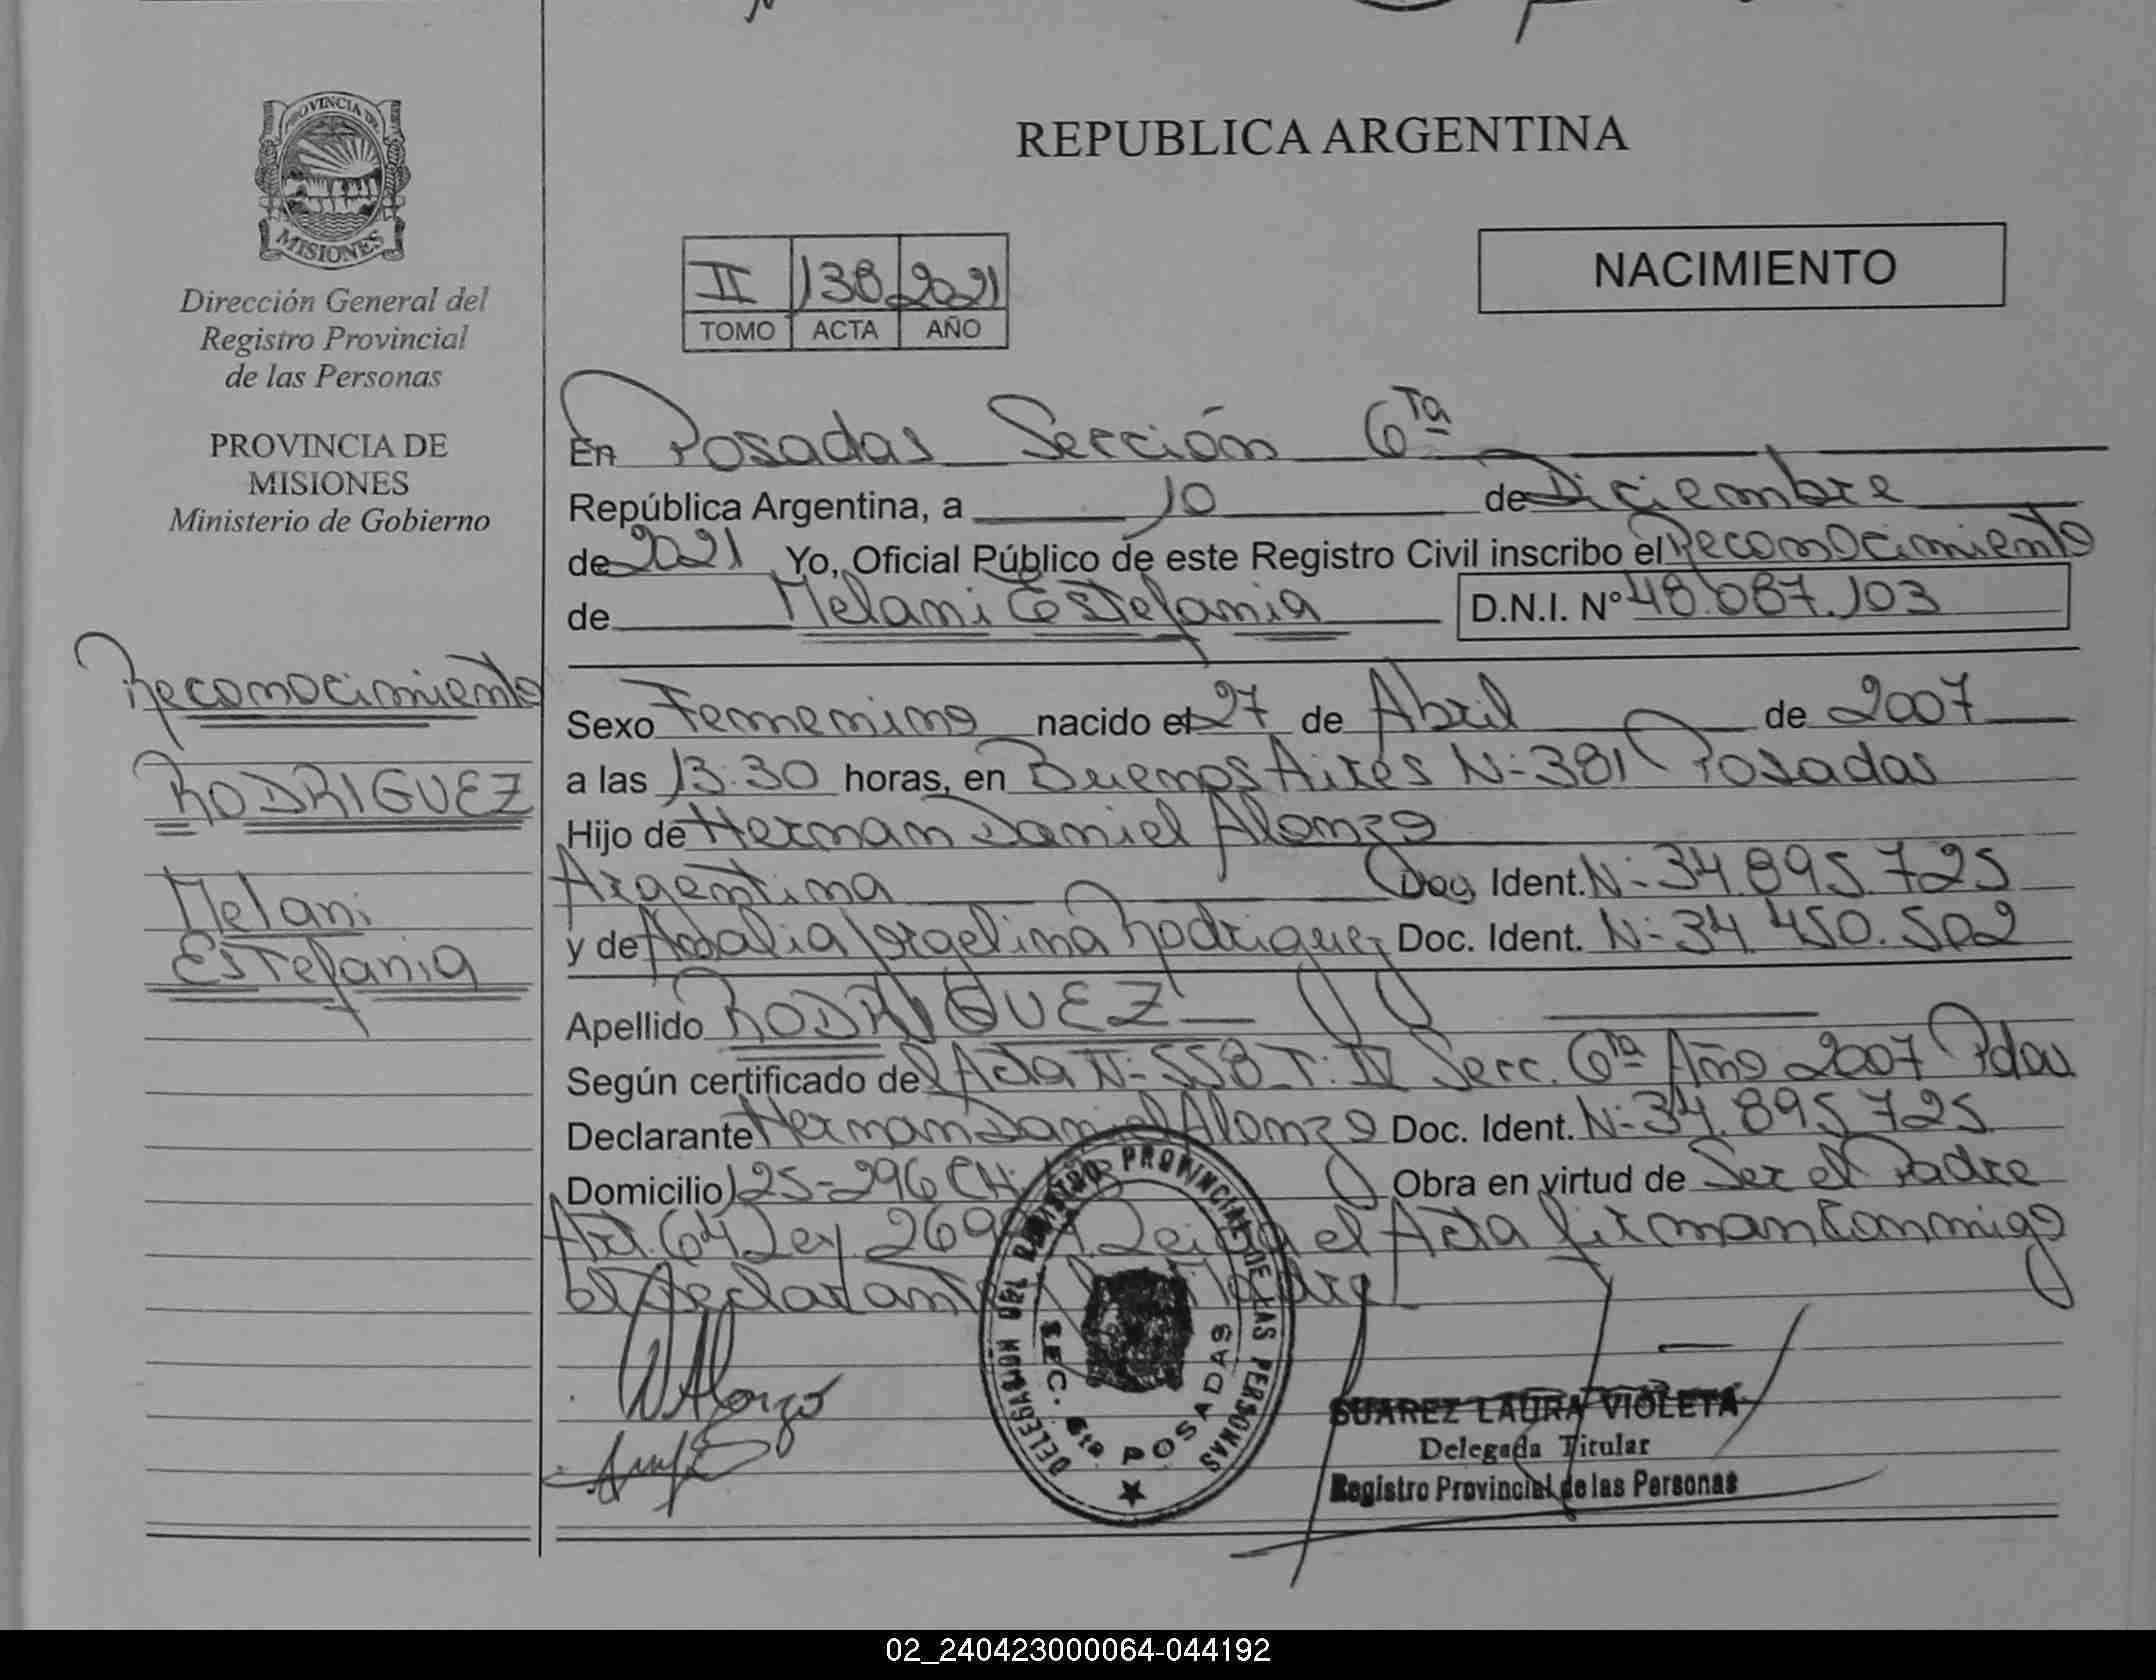 PROVINCIA DE
MISIONES
Dirección General del
Registro Provincial
de las Personas
PROVINCIA DE
MISIONES
Ministerio de Gobierno
Reconocimiento
RODRIGUEZ
Melani
Estefania
REPUBLICA ARGENTINA
NACIMIENTO
II 138 2021
TOMO ACTA AÑO
En Posadas Sección 6ta
República Argentina, a 10 de Diciembre
de 2021 Yo, Oficial Público de este Registro Civil inscribo el Reconocimiento
de Melani Estefania D.N.I. Nº 48.087.103
Sexo Femenino nacido el 27 de Abril de 2007
a las 13:30 horas, en Buenos Aires N:381 Posadas
Hijo de Hernan Daniel Alonzo
Argentina Doc. Ident. N:34.895.725
y de Rosalia Jorgelina Rodriguez Doc. Ident. N:34.450.502
Apellido RODRIGUEZ
Según certificado del Acta N:558 T:IV Secc. 6ta Año 2007 Pdas
Declarante Hernan Daniel Alonzo Doc. Ident. N:34.895.725
Domicilio 125-296 CH: Obra en virtud de Ser el Padre
Art. 64 Ley Leida el Acta firman Conmigo
el declarante
WAlonzo
DELEGACION DEL REGISTRO PROVINCIAL DE LAS PERSONAS
SEC. 6ta POSADAS
SUAREZ LAURA VIOLETA
Delegada Titular
Registro Provincial de las Personas
02_240423000064-044192